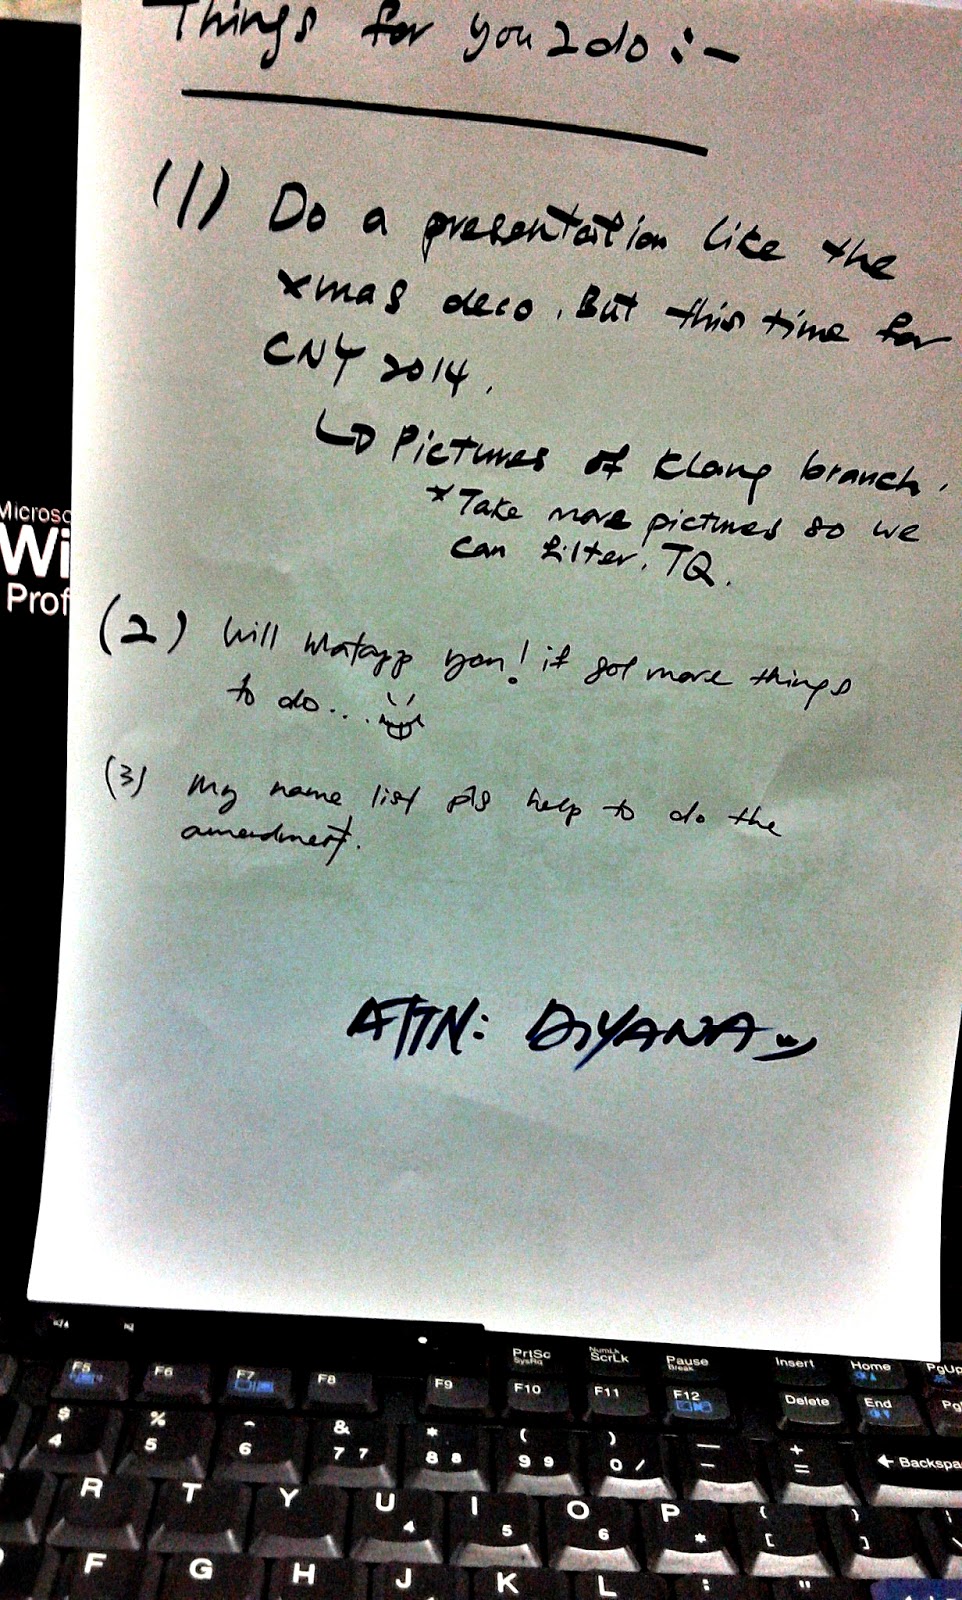 Things for you 2 do :-
(1) Do a presentation like the
xmas deco. But this time for
CNY 2014.
Pictures of Klang branch.
* Take more pictures so we
can filter. TQ.
(2) Will whatapp you! if got more things
to do...
(3) My name list pls help to do the
amendment.
ATTN: DIYANA
Microso
Wi
Prof
PrtSc
SysRq
NumLk
ScrLk
Pause
Break
Insert
Home
PgUp
F5 F6 F7 F8 F9 F10 F11 F12 Delete End Pg
$ % ^ & * ( ) — +
4 5 6 7 7 8 8 9 9 0 / - = ← Backspa
R T Y U 4 I 5 O 6 P * { [ } ]
F G H J K L : "